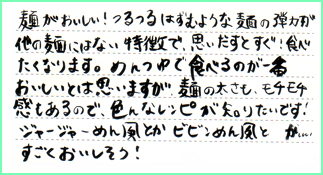 麺がおいしい！つるつるはずむような麺の弾力が
他の麺にはない特徴で、思いだすとすぐ！食べ
たくなります。めんつゆで食べるのが一番
おいしいとは思いますが、麺の太さも、モチモチ
感もあるので、色んなレシピが知りたいです！
ジャージャーめん風とかビビンめん風とか…
すごくおいしそう！